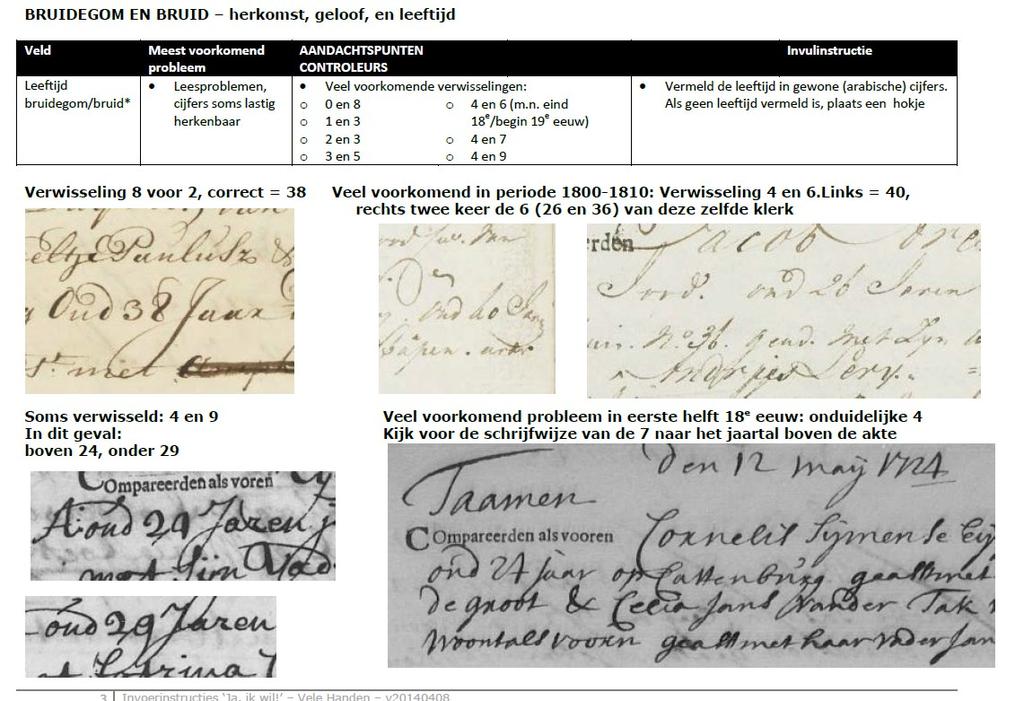 BRUIDEGOM EN BRUID – herkomst, geloof, en leeftijd
Veld
Meest voorkomend
probleem
AANDACHTSPUNTEN
CONTROLEURS
Invulinstructie
Leeftijd
bruidegom/bruid*
• Leesproblemen,
cijfers soms lastig
herkenbaar
• Veel voorkomende verwisselingen:
o 0 en 8
o 1 en 3
o 2 en 3
o 3 en 5
o 4 en 6 (m.n. eind
18e/begin 19e eeuw)
o 4 en 7
o 4 en 9
• Vermeld de leeftijd in gewone (arabische) cijfers.
Als geen leeftijd vermeld is, plaats een hokje
Verwisseling 8 voor 2, correct = 38
Veel voorkomend in periode 1800-1810: Verwisseling 4 en 6.Links = 40,
rechts twee keer de 6 (26 en 36) van deze zelfde klerk
Paulusz
Oud 38 Jaar
met
oud 40
rden Jacob
oud 26 Jaren
No 36. gend. met Zyn
Soms verwisseld: 4 en 9
In dit geval:
boven 24, onder 29
Compareerden als voren
oud 24 Jaren
met sijn Vad
oud 29 Jaren
Veel voorkomend probleem in eerste helft 18e eeuw: onduidelijke 4
Kijk voor de schrijfwijze van de 7 naar het jaartal boven de akte
den 12 may 1724
Taamen
Compareerden als vooren Cornelis Sijmense
oud 24 jaar op Cattenburg geast met
de groot & Celia Jans vander Tak
woont als voorn geast met haar vader Jan
3 | Invoerinstructies ‘Ja, ik wil!’ – Vele Handen – v20140408